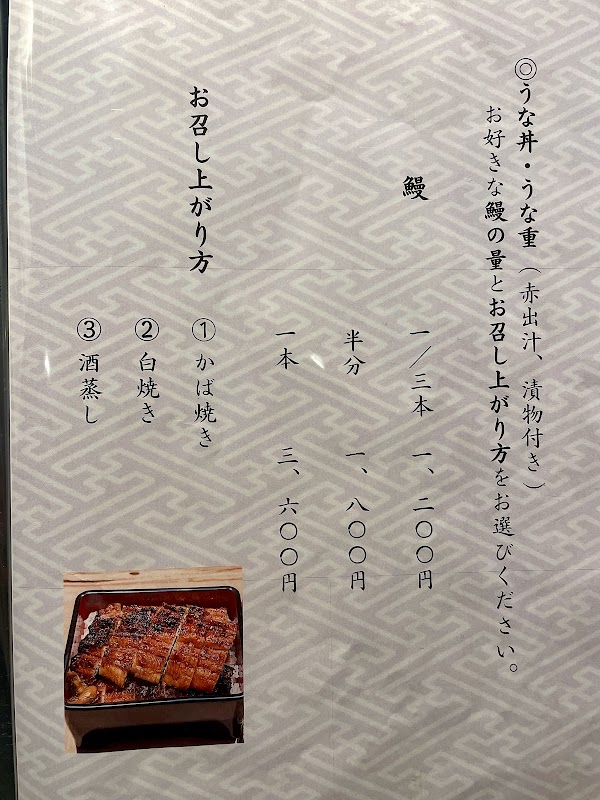 ◎うな丼・うな重（赤出汁、漬物付き）
お好きな鰻の量とお召し上がり方をお選びください。
鰻
一／三本 一、二〇〇円
半分 一、八〇〇円
一本 三、六〇〇円
お召し上がり方
①かば焼き
②白焼き
③酒蒸し